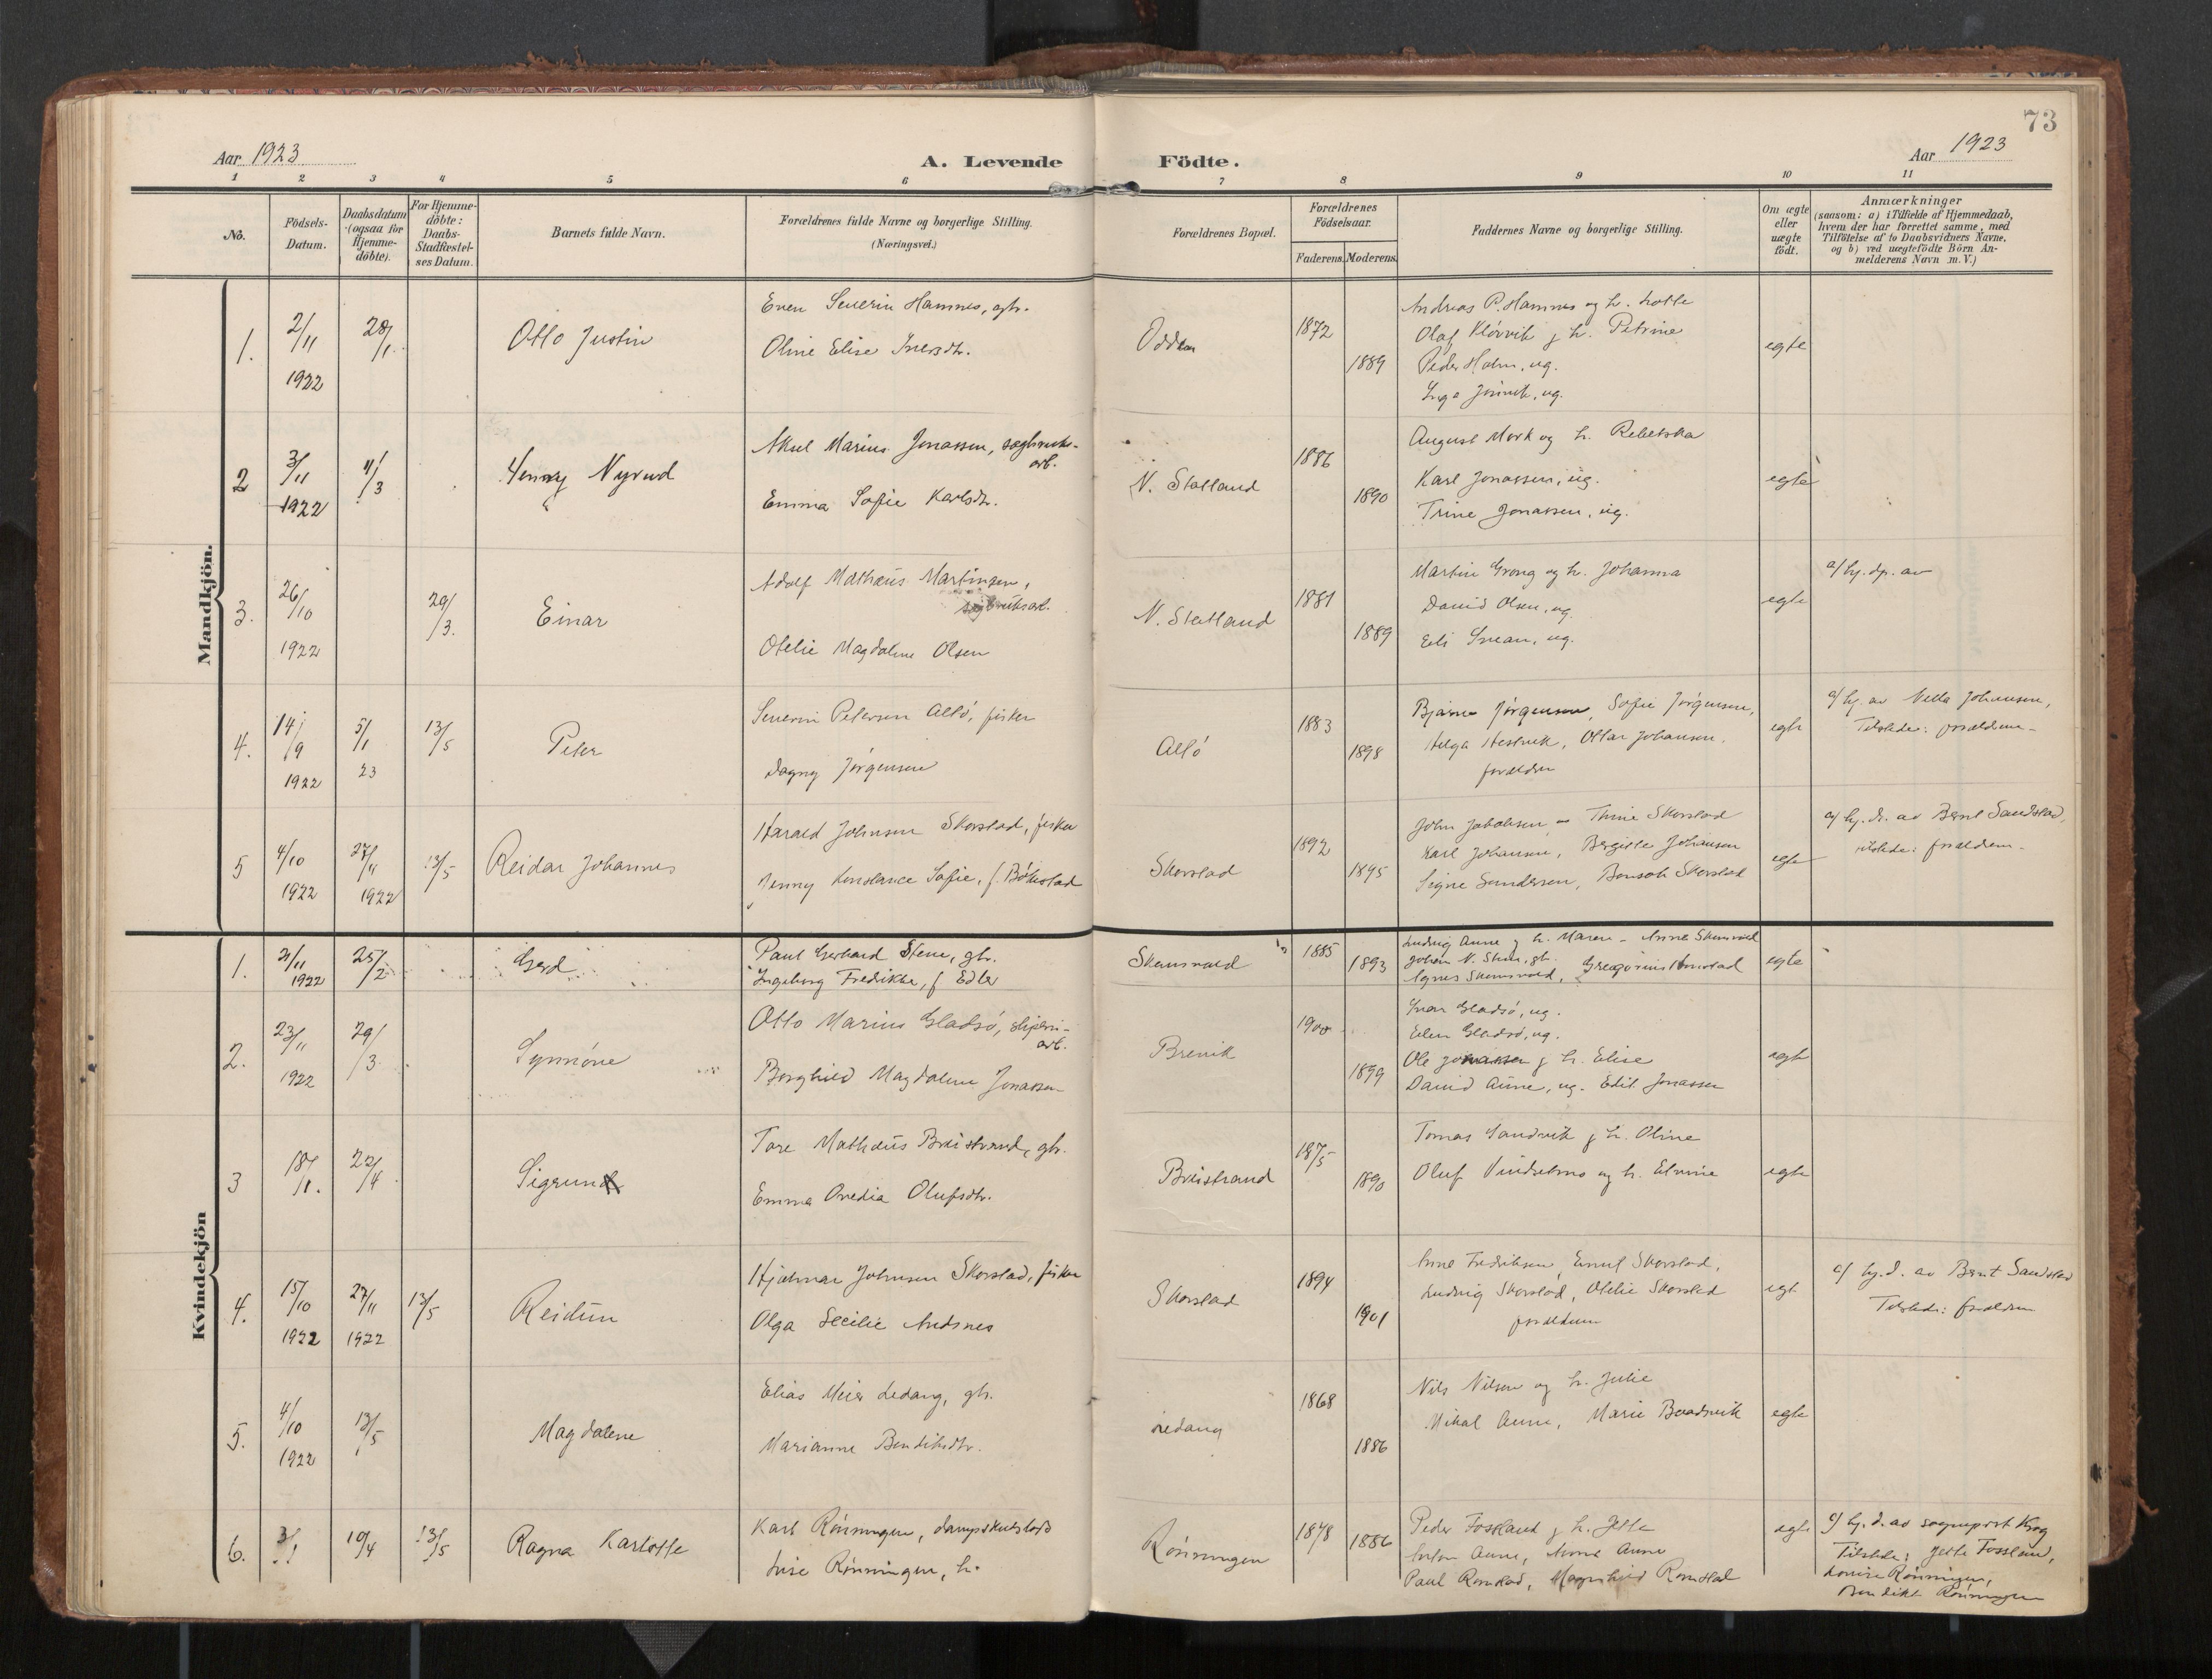 73
Aar 1923
A. Levende Födte.
Aar 1923
1 2 3 4 5 6 7 8 9 10 11
No.
Födsels-Datum.
Daabsdatum (ogsaa for Hjemme-döbte).
For Hjemme-döbte: Daabs-Stadfæstel-ses Datum.
Barnets fulde Navn.
Forældrenes fulde Navne og borgerlige Stilling.
(Næringsvei.)
Forældrenes Bopæl.
Forældrenes Födselsaar.
Faderens. Moderens.
Faddernes Navne og borgerlige Stilling.
Om ægte eller uægte födt.
Anmærkninger
(saasom: a) i Tilfælde af Hjemmedaab,
hvem der har forrettet samme, med
Tilföielse af to Daabsvidners Navne,
og b) ved uægtefödte Börn An-
melderens Navn m. V.)
Mandkjön.
1. 2/11 1922 28/1. Otto Justin
Even Severin Hamnes, gbr.
Oline Elise Iversdtr.
Odden 1872 1889
Andreas P. Hamnes og h. Lotte
Olaf Kløvvik g h. Petrine
Peder Holm, ug.
Inga Jønvik, ug.
egte
2 3/11 1922 11/3 Henry Nyrud
Aksel Marius Jonassen, sagbruks-
arb.
Emma Sofie Karlsdtr.
N. Statland 1886 1890
August Mork og h. Rebekka
Karl Jonassen, ug.
Trine Jonassen, ug.
egte
3. 26/10 1922 29/3. Einar
Adolf Mathæus Martinsen,
sagbruksarb.
Otelie Magdalene Olsen
N. Statland 1881 1889
Martin Grong og h. Johanna
David Olsen, ug.
Eli Snean, ug.
egte
a/ hj. dp. av
4. 14/9 1922 5/1 23 13/5 Peter
Severin Petersen Altø, fisker
Dagny Jørgensen
Altø 1883 1898
Bjarne Jørgensen, Sofie Jørgensen,
Helga Hestvik, Ottar Johansen.
forældren
egte
a/ hj. av Nella Johansen,
Tilstede: forældrene
5 4/10 1922 27/11 1922 13/5 Reidar Johannes
Harald Johnsen Skorstad, fisker
Jenny Konstance Sofie, f. Bøkestad
Skorstad 1892 1895
John Jakobsen Thrine Skorstad
Karl Johansen, Bergitte Johansen
Signe Gundersen, Skorstad
egte
a/ hj. d. av Bernt Sandstad,
tilstede: forældrene
Kvindekjön
1. 21/11 1922 25/2 Gerd
Paul Gerhard Stene, gbr.
Ingeborg Fredrikke, f Edler
Skemsvold 1885 1893
Ludvig Aune g h. Maren - Anna Skemsvold
Johan N. Stene, gb. Gregorius
Agnes Skemsvold,
egte
2. 23/11 1922 29/3 Synnøve
Otto Marius Gladsø, sliperi-
arb.
Borghild Magdalene Jonassen
Brevik 1900 1899
Ivar Gladsø, ug.
Elen Gladsø, ug.
Ole Jonassen g h. Elise
David Aune, ug. Edit Jonassen
egte
3 18/1. 22/4 Sigrun
Tore Mathæus Breistrand, gbr.
Emma Ovedia Olufsdtr.
Breistrand 1875 1890
Tomas Sandvik g h. Oline
Oluf Vindsetmo og h. Elvine
egte
4. 15/10 1922 27/11 1922 13/5 Reidun
Hjalmar Johnsen Skorstad, fisker
Olga Secilie Andsnes
Skorstad 1894 1901
Arne Fredriksen, Emil Skorstad,
Ludvig Skorstad, Otelie Skorstad
forældrene
egte
a/ hj. d. av Bernt Sandstad
Tilstede: forældrene
5. 4/10 1922 13/5 Magdalene
Elias Meier Ledang, gb.
Marianne Bendiksdtr.
Ledang 1868 1886
Nils Nilsen og h. Julie
Mikal Aune, Marie Baadsvik
egte
6. 3/1 19/4 13/5 Ragna Karlotte
Karl Rønningen,
Luise Rønningen, h.
Rønningen 1878 1886
Peder Fossland g h. Jette
Anton Aune, Anne Aune
Paul Ramstad, Magnhild Ramstad
egte
a/ hj. d. av sogneprest Krog
Tilstede: Jette Fossland,
Louise Rønningen,
Bendikt Rønningen